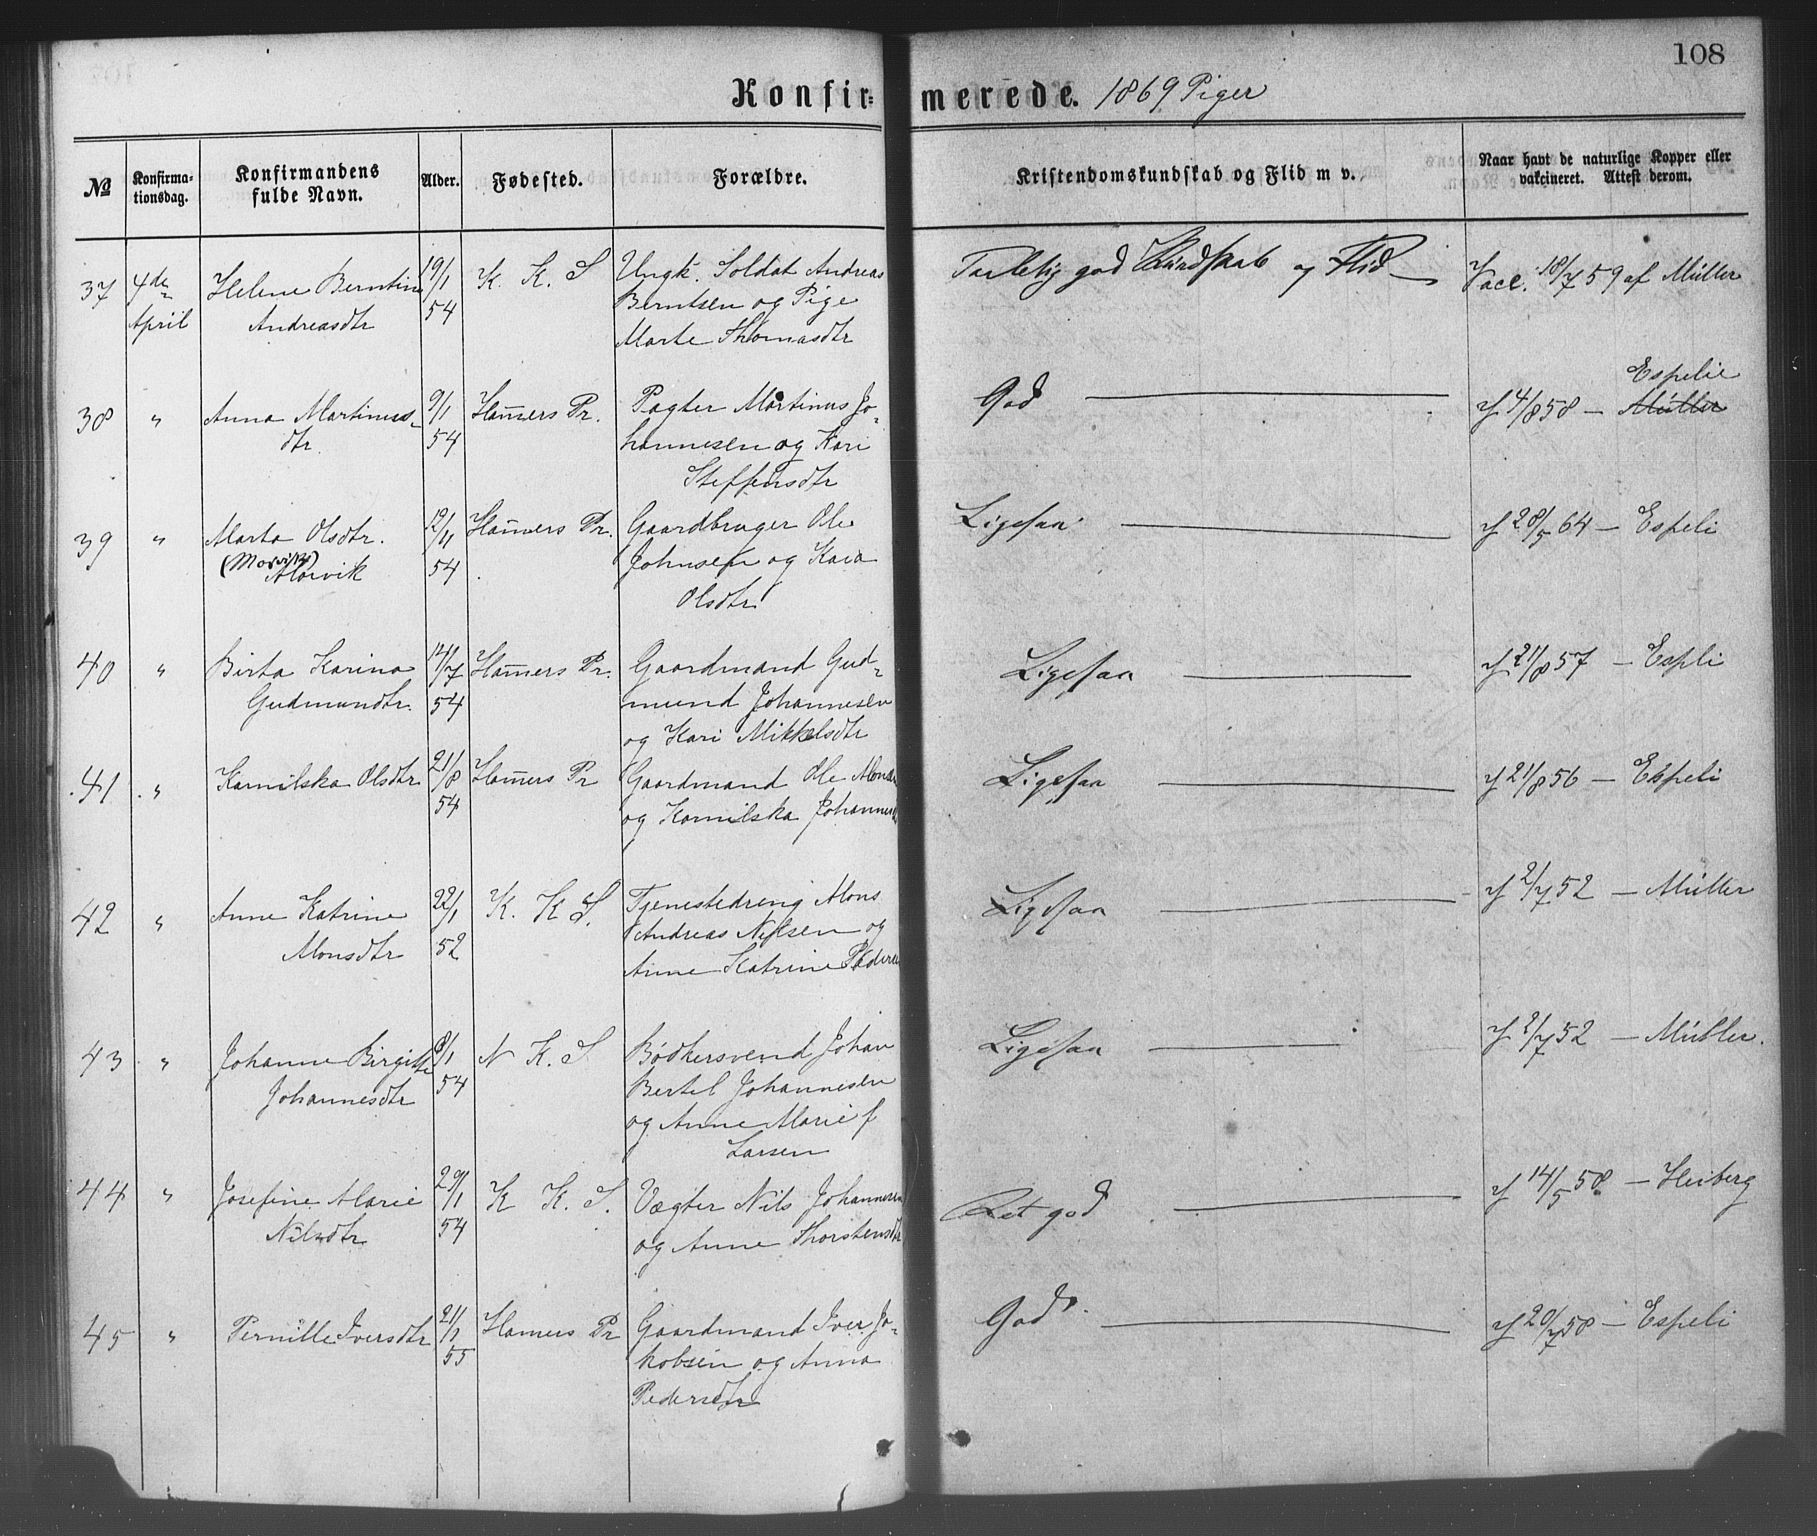 108
Konfir- merede. 1869 Piger
No
Konfirma-
tionsdag.
Konfirmandens
fulde Navn.
Alder.
Fødested.
Forældre.
Kristendomskundskab og Flid m v.
Naar havt de naturlige Kopper eller
vakcineret. Attest derom.
37 4de Helene Berntine 19/1 K. K. S Ungk. Soldat Andreas Taalelig god Kundskab og Flid Vacc. 18/7 59 af Müller
April Andreasdtr 54 Berntsen og Pige
Marte Thomasdtr
38 " Anna Martinus- 9/1 Hamers Pr. Pagter Martinus Jo- God — 4/8 58 — Espelie Müller
dtr 54 hannesen og Kari
Steffensdtr
39 " Marta Olsdtr. 12/11 Hamers Pr. Gaardbruger Ole Ligesaa — 28/5 64 — Espeli
(Morvik) Morvik 54 Johnsen og Kari
Olsdtr
40 " Birta Karina 14/7 Hamers Pr. Gaardmand Gud- Ligesaa — 21/8 57 — Espeli
Gudmundtr. 54 mund Johannesen
og Kari Mikkelsdtr
41 " Kamilska Olsdtr 21/8 Hamers Pr Gaardmand Ole Ligesaa — 21/8 56 — Espeli
54 og Kamilska
42 " Anne Katrine 22/1 K. K S. Tjenestedreng Mons Ligesaa — 2/7 52 — Müller
Monsdtr 52 Andreas Nilsen og
Anne Katrine
43 " Johanne Birgitte 8/1 N K. S. Bødkersvend Johan Ligesaa — 2/7 52 — Müller.
Johannesdtr 54 Bertel Johannesen
og Anne Marie f
Larsen
44 " Josefine Marie 29/1 K K. S. Vægter Nils Johannesen Ret god — 14/5 58 — Heiberg
Nilsdtr 54 og Anne Thorstensdtr
45 " Pernille Iversdtr 21/1 Hamers Pr Gaardmand Iver Ja- God — 20/7 58 — Espeli
55 kobsen og Anna
Pedersdtr